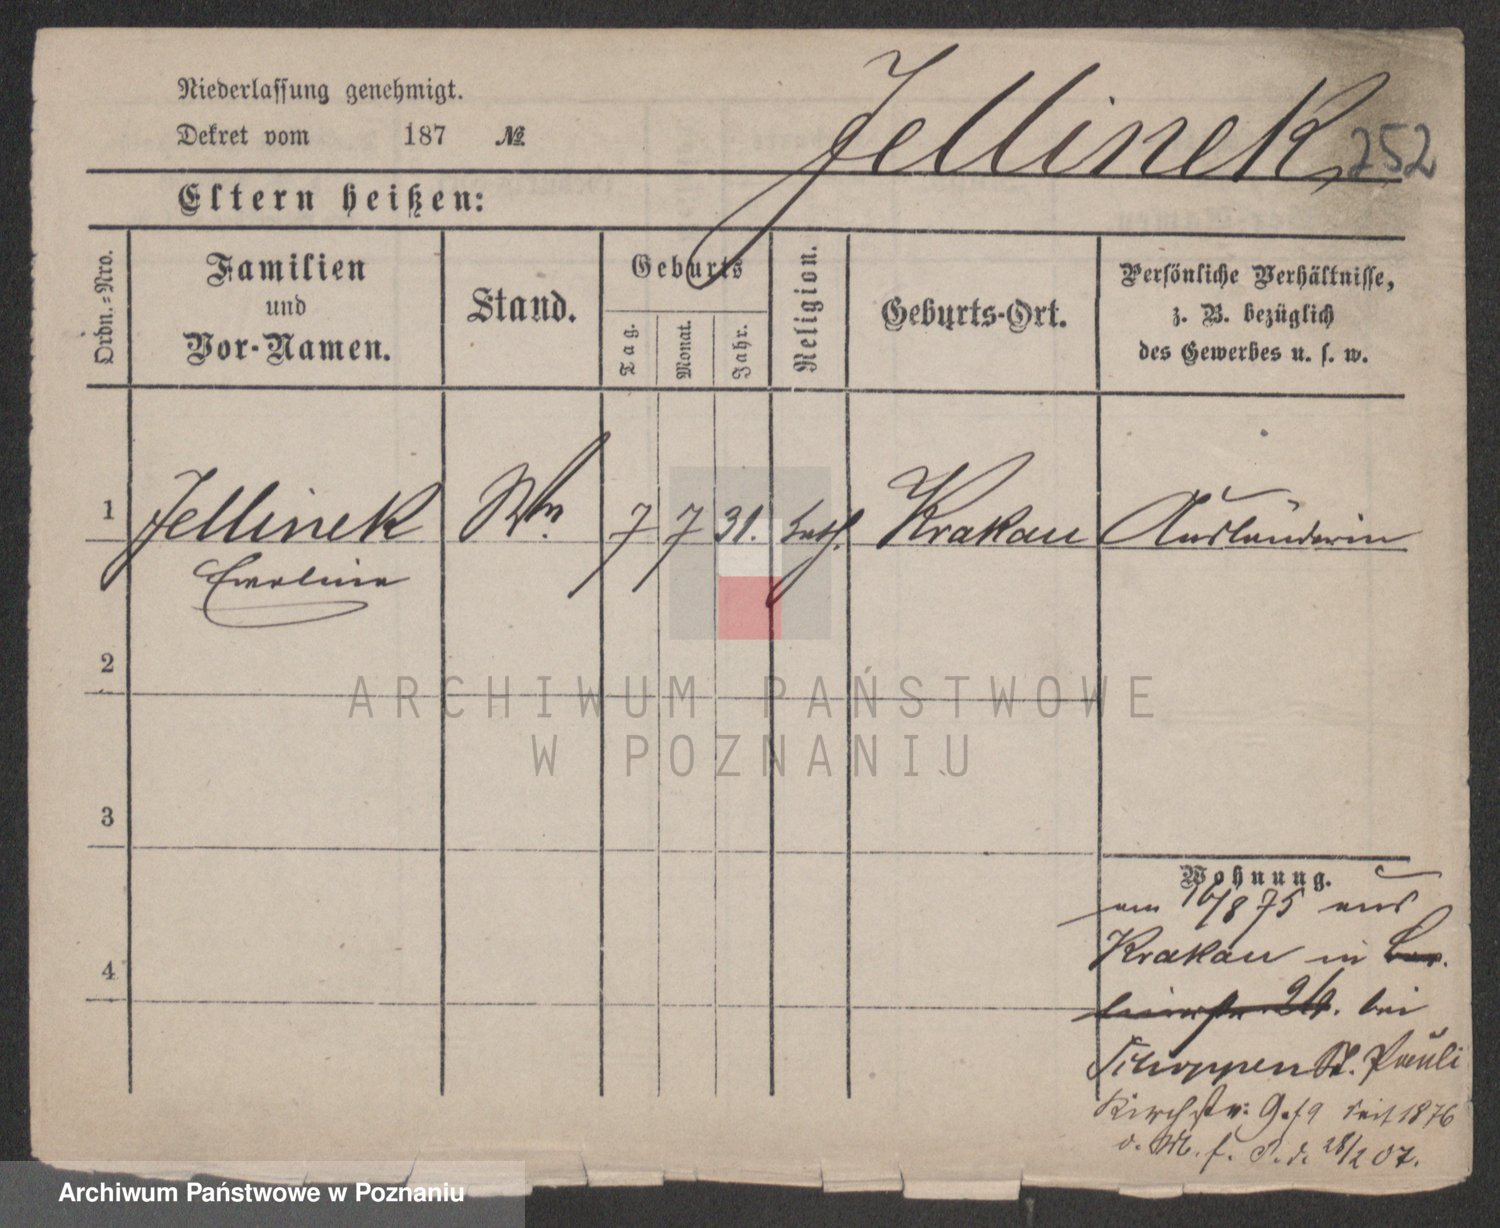 Niederlassung genehmigt.
Dekret vom 187 №
Jellinek
252
Eltern heißen:
Ordn.-Nro.
Familien
und
Vor-Namen.
Stand.
Geburts
Tag.
Monat.
Jahr.
Religion.
Geburts-Ort.
Persönliche Verhältnisse,
z. B. bezüglich
des Gewerbes u. s. w.
1 Jellinek 7 7 31. kath. Krakau Ausländerin
Eveline
2
ARCHIWUM PAŃSTWOWE
W POZNANIU
3
4
Wohnung.
am 16/8 75 aus
Krakau in Ber-
linerstr. bei
St. Pauli
Kirchstr: seit 1876
28/2 07.
Archiwum Państwowe w Poznaniu